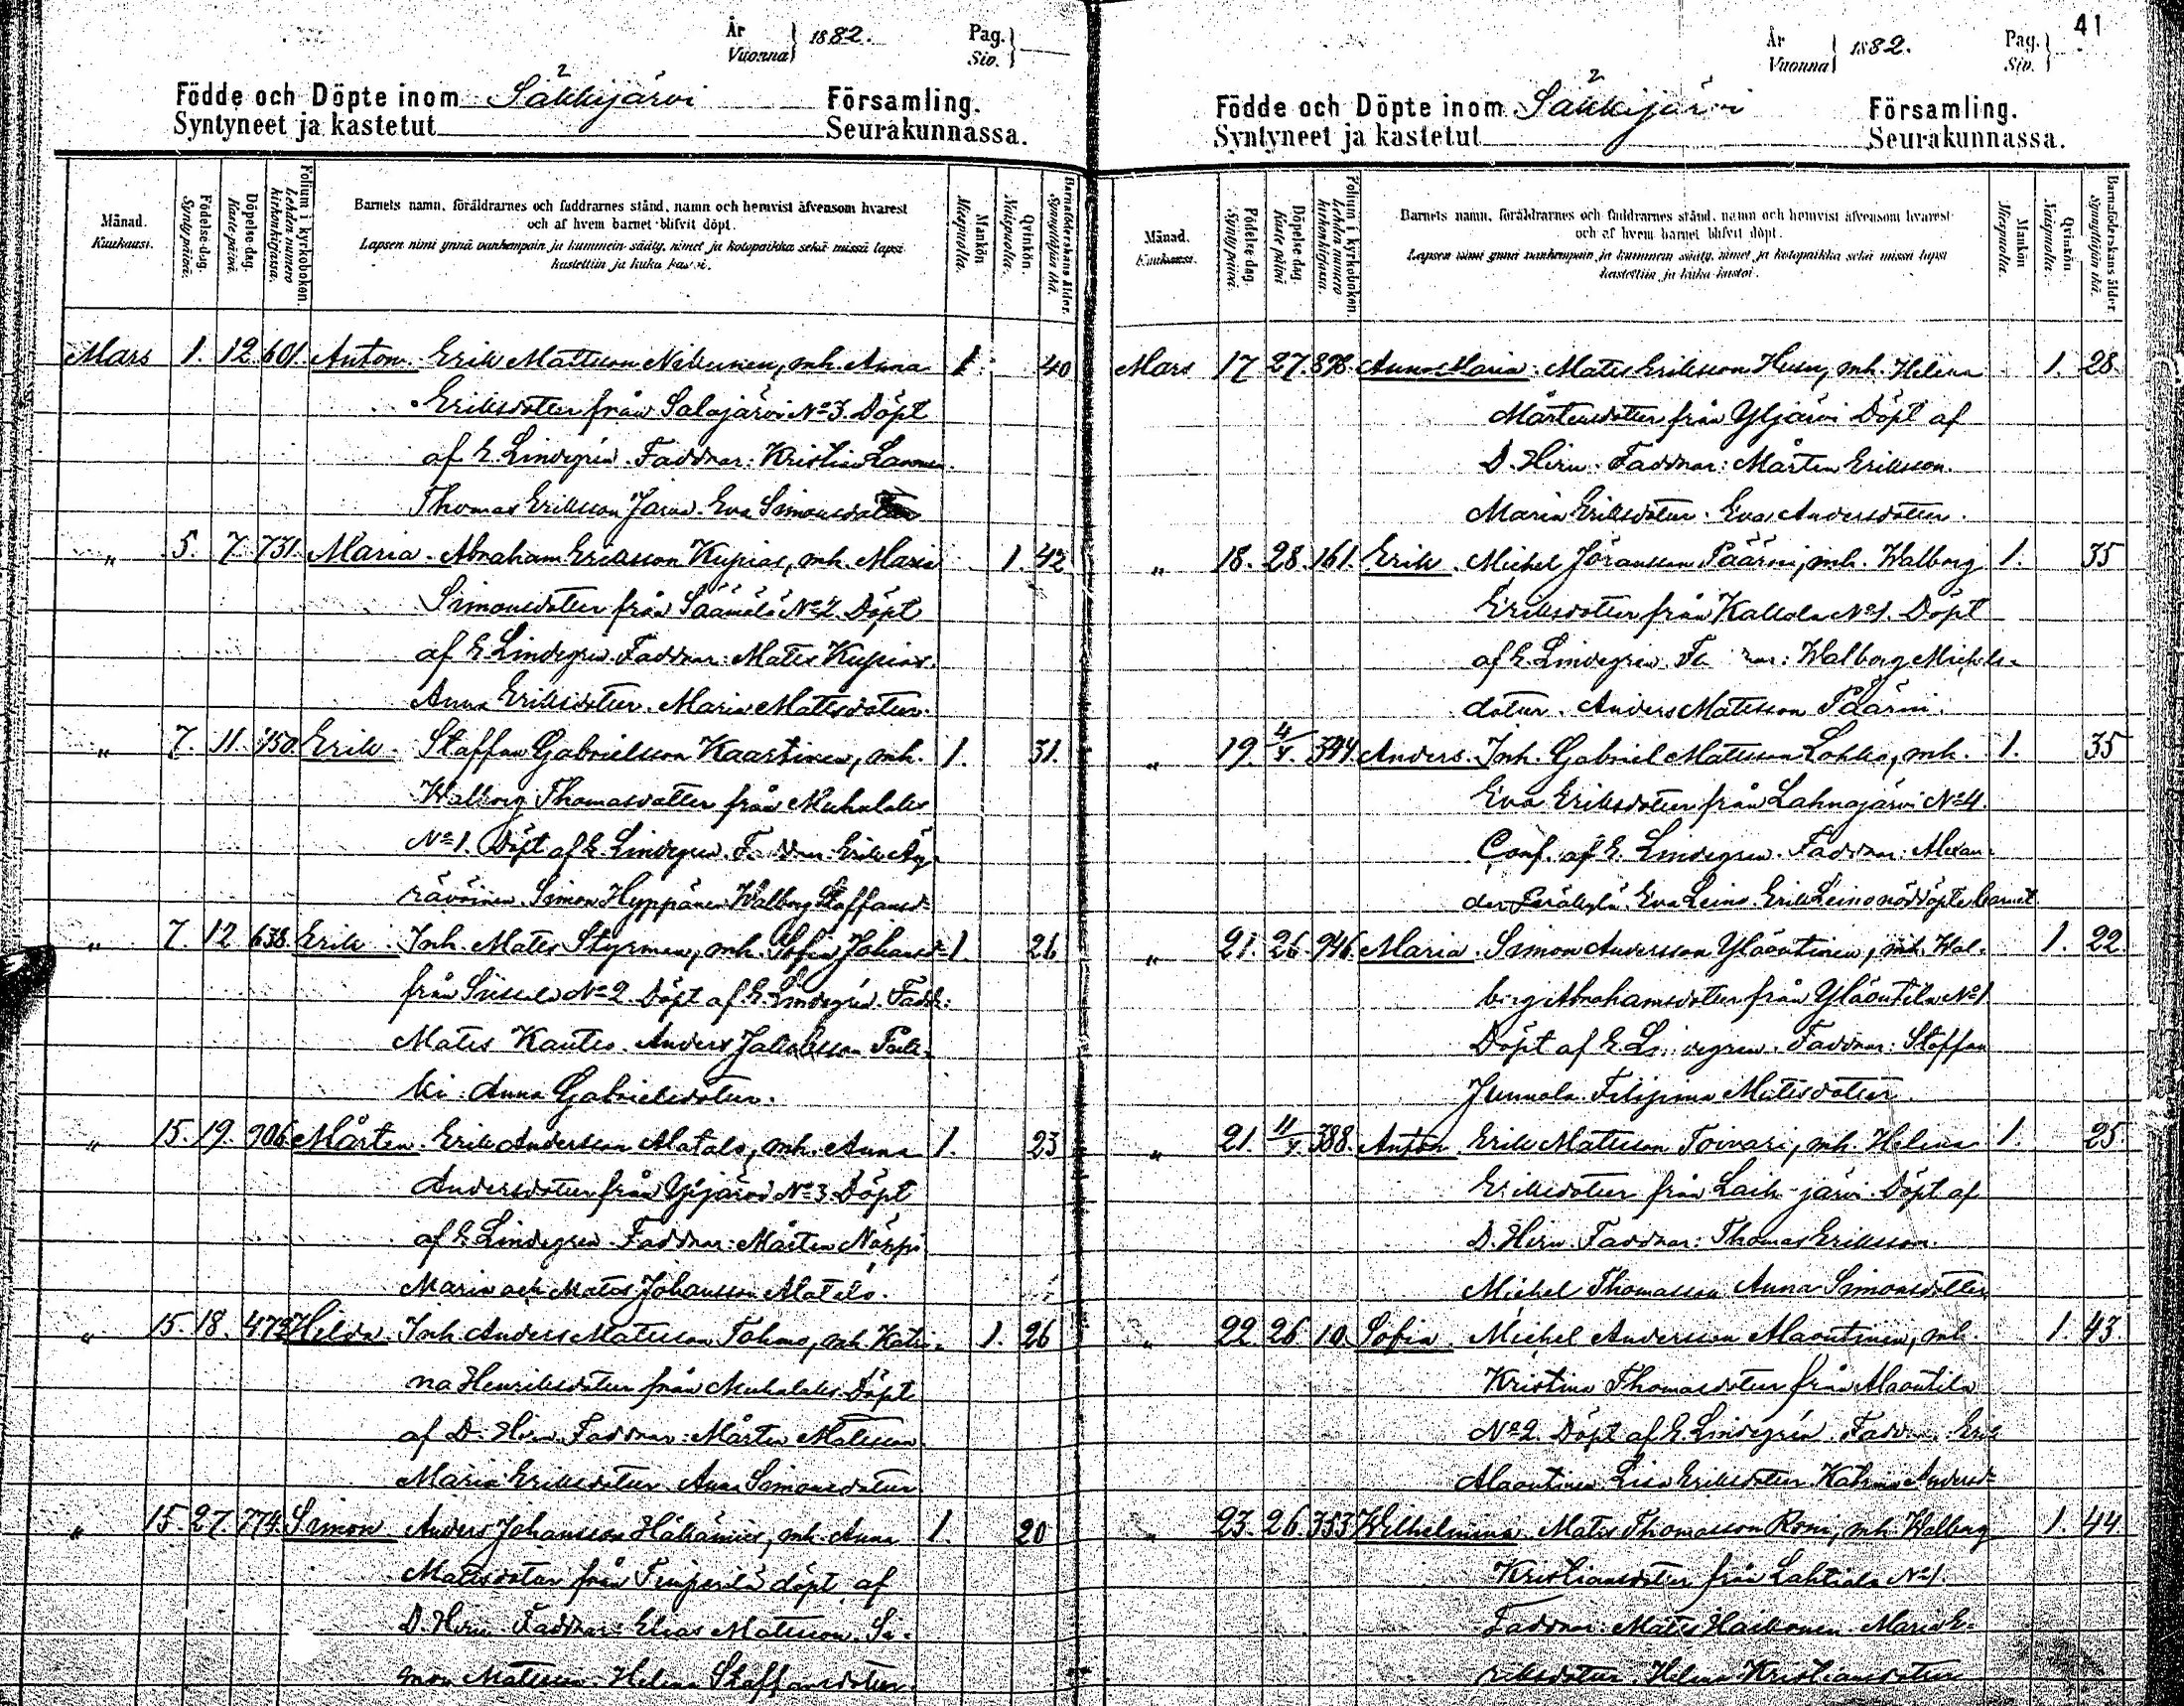 År
Vuonna } 1882.
Pag.
Siv. }
Födde och Döpte inom Säkkijärvi Församling.
Syntyneet ja kastetut Seurakunnassa.
Månad.
Kuukausi.
Födelse-dag.
Synty-päivä.
Döpelse-dag.
Kaste-päivä.
Folium i kyrkoboken.
Lehden numero kirkonkirjassa.
Barnets namn, föräldrarnes och faddrarnes stånd, namn och hemvist äfvensom hvarest
och af hvem barnet blifvit döpt.
Lapsen nimi ynnä vanhempain ja kummein sääty, nimet ja kotopaikka sekä missä lapsi
kastettiin ja kuka kastoi.
Mankön
Miespuolia.
Qvinkön.
Naispuolia.
Barnaföderskans ålder.
Synnyttäjän ikä.
Mars 1. 12. 601. Anton. Erik Mattsson Nikunen, mh. Anna 1. 40
Eriksdotter från Salajärvi No 3. Döpt
af E. Lindegrén. Faddrar: Kristian
Thomas Eriksson Eva Simonsdotter
" 5. 7. 731. Maria. Abraham Eriksson Kupias, mh. Maria 1. 42
Simonsdotter från Säämälä No 2. Döpt
af E. Lindegrén. Faddrar: Mats Kupias.
Anna Eriksdotter. Maria Matsdotter.
" 7. 11. 150. Erik. Staffan Gabrielsson Kaartinen, mh. 1. 31.
Walborg Thomasdotter från Muhulaks
No 1. Döpt af E. Lindegrén. Faddrar Erik Äy-
räväinen. Simon Hyppänen Walborg Staffansd:
" 7. 12 638. Erik. Inh. Mats Styrman, mh. Sofia Johansd: 1. 26
från No 2 Döpt af E. Lindegrén. Faddr:
Mats Kautto. Anders Jakobsson
ki. Anna Gabrielsdotter.
" 15. 19. 906. Mårten. Erik Andersson Alatalo, mh. Anna 1. 23
Andersdotter från Ylijärvi No 3. Döpt
af E. Lindegrén. Faddrar: Mårten Näppi
Maria och Mats Johansson Alatalo.
" 15. 18. 473. Hilda. Inh. Anders Matsson Tohmo, mh. Katri- 1. 26
na Henriksdotter från Muhulaks. Döpt
af D. Hirn. Faddrar: Mårten Matsson
Maria Eriksdotter Anna Simonsdotter
" 15. 27. 774. Simon Anders Johansson, mh. Anna 1. 20
Matsdotter från döpt af
D. Hirn Faddrar: Elias Matsson. Si-
mon Matsson. Helena Staffansdotter.
41
År
Vuonna } 1882.
Pag.
Siv. }
Födde och Döpte inom Säkkijärvi Församling.
Syntyneet ja kastetut Seurakunnassa.
Månad.
Kuukausi.
Födelse-dag.
Synty-päivä.
Döpelse-dag.
Kaste-päivä
Folium i kyrkoboken.
Lehden numero kirkonkirjassa.
Barnets namn, föräldrarnes och faddrarnes stånd, namn och hemvist äfvensom hvarest
och af hvem barnet blifvit döpt.
Lapsen nimi ynnä vanhempain ja kummein sääty, nimet ja kotopaikka sekä missä lapsi
kastettiin ja kuka kastoi.
Mankön
Miespuolia.
Qvinkön.
Naispuolia.
Barnaföderskans ålder.
Synnyttäjän ikä.
Mars 17 27. 878. Anna Maria. Mats Eriksson Husu, mh. Helena 1. 28.
Mårtensdotter från Ylijärvi Döpt af
D. Hirn. Faddrar: Mårten Eriksson.
Maria Eriksdotter. Eva Andersdotter.
" 18. 28. 161. Erik. Michel Jöransson Päärni, mh. Walborg 1. 35
Eriksdotter från Kattola No 1. Döpt
af E. Lindegrén. Fa rar: Walborg Michels-
dotter. Anders Matsson Päärni.
" 19. 4/4. 394. Anders. Inh. Gabriel Matsson Lohko, mh. 1. 35
Eva Eriksdotter från Lahnajärvi No 4.
Conf. af E. Lindegrén. Faddrar: Alexan-
der Peräkylä. Eva Leino. Erik Leino nöddöpte barnet
" 21. 26. 946. Maria. Simon Andersson Yläoutinen, mh. Wal- 1. 22.
borg Abrahamsdotter från Yläoutila No 1
Döpt af E. Li degrén. Faddrar: Staffan
Junnola Filipina Matsdotter.
" 21. 11/4. 388. Anton. Erik Matsson Toivari, mh. Helena 1. 25.
Eriksdotter från Laih järvi. Döpt af
D. Hirn. Faddrar: Thomas Eriksson.
Michel Thomasson Anna Simonsdotter
" 22. 26. 10. Sofia. Michel Andersson Alaoutinen, mh. 1. 43.
Kristina Thomasdotter från Alaoutila
No 2. Döpt af E. Lindegrén. Faddrar: Erik
Alaoutinen Lisa Eriksdotter Katrina Andersd:
" 23. 26. 353 Wilhelmina. Mats Thomasson Roni, mh. Walborg 1. 44.
Kristiansdotter från Lahtiala No 1
Faddrar: Mats Haikonen Maria E-
riksdotter. Helena Kristiansdotter